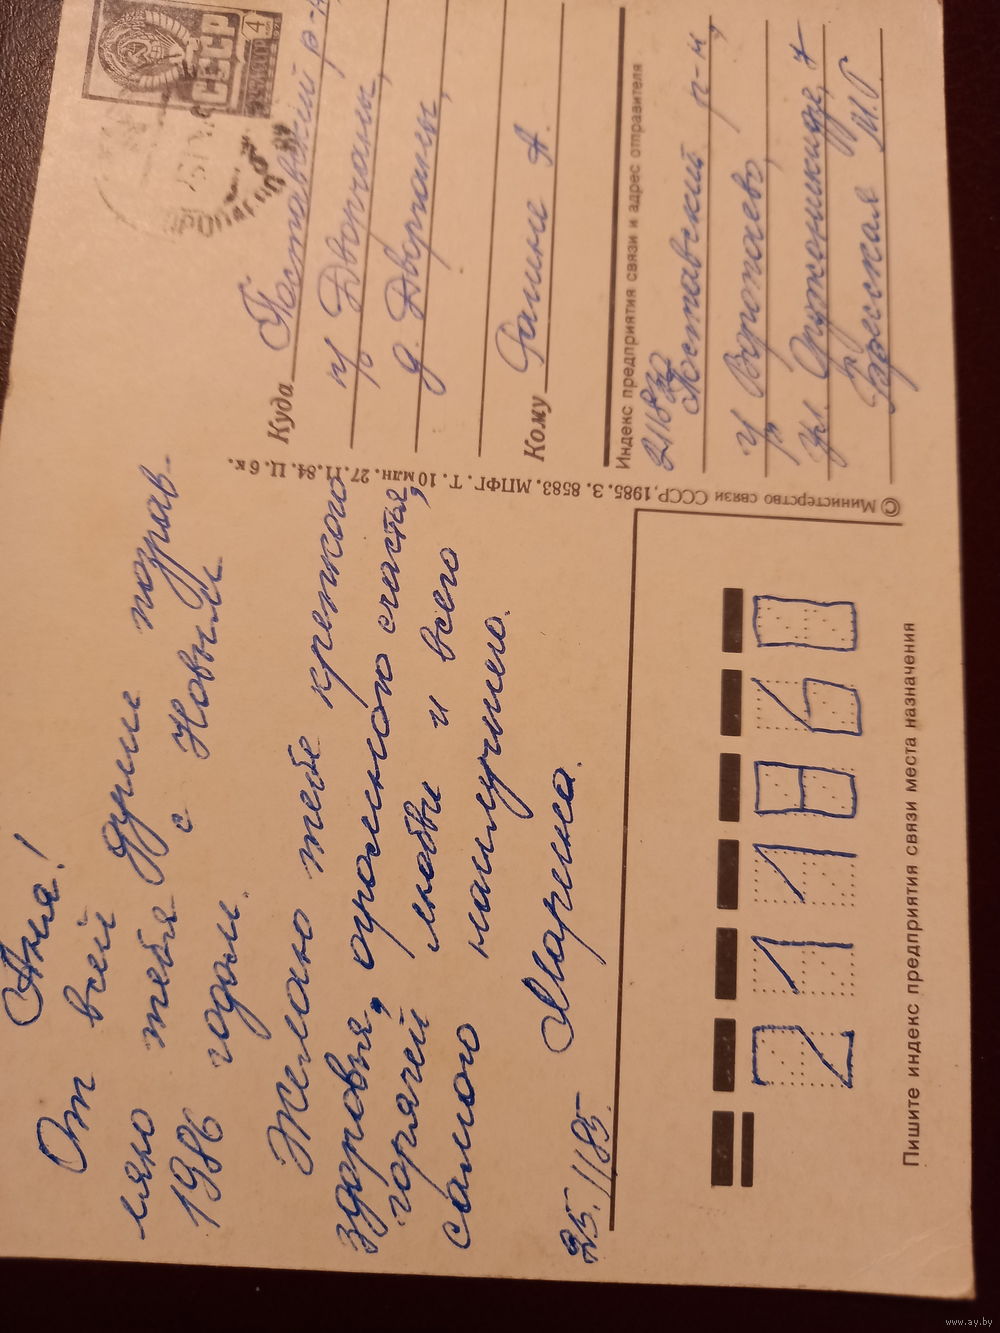 Аня!
От всей души поздрав-
ляю тебя с Новым
1986 годом.
Желаю тебе крепкого
здоровья, огромного счастья,
горячей любви и всего
самого наилучшего.
25.11.85. Марина.
СССР
4
Куда Поставский р-н,
п/ Дворчаны,
д. Дворчаны,
Кому Галине А.
Индекс предприятия связи и адрес отправителя
211832
Поставский р-н,
п/ Воропаево,
ул. Орджоникидзе, 7
М.Г.
© Министерство связи СССР, 1985. З. 8583. МПФГ. Т. 10 млн. 27.11.84. Ц. 6 к.
211860
Пишите индекс предприятия связи места назначения
www.ay.by